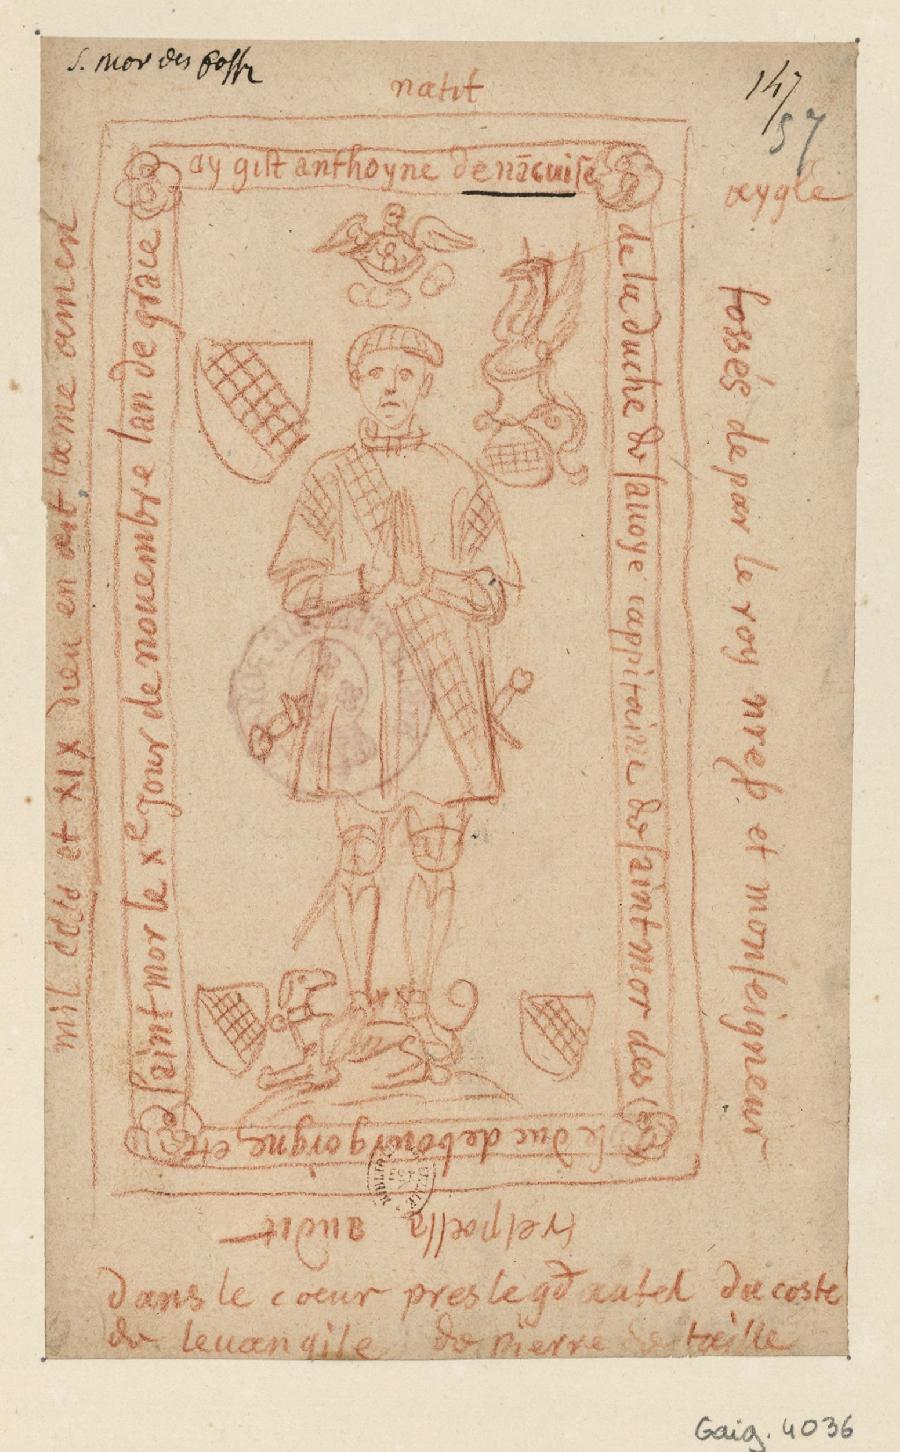 S. Mor des foss
natif
147
57
cy gist anthoyne de nācuise
aygle
de la duche de sauoye cappitaine de saint mor des
fossés de par le roy nres et monseigneur
le duc de bourgorgne, etc
trespassa audit
saint mor le xe jour de nouembre lan de grace
mil cccc et XIX dieu en ait lame amen
dans le coeur pres le gd autel du coste
de leuangile de pierre de taille
Gaig. 4036